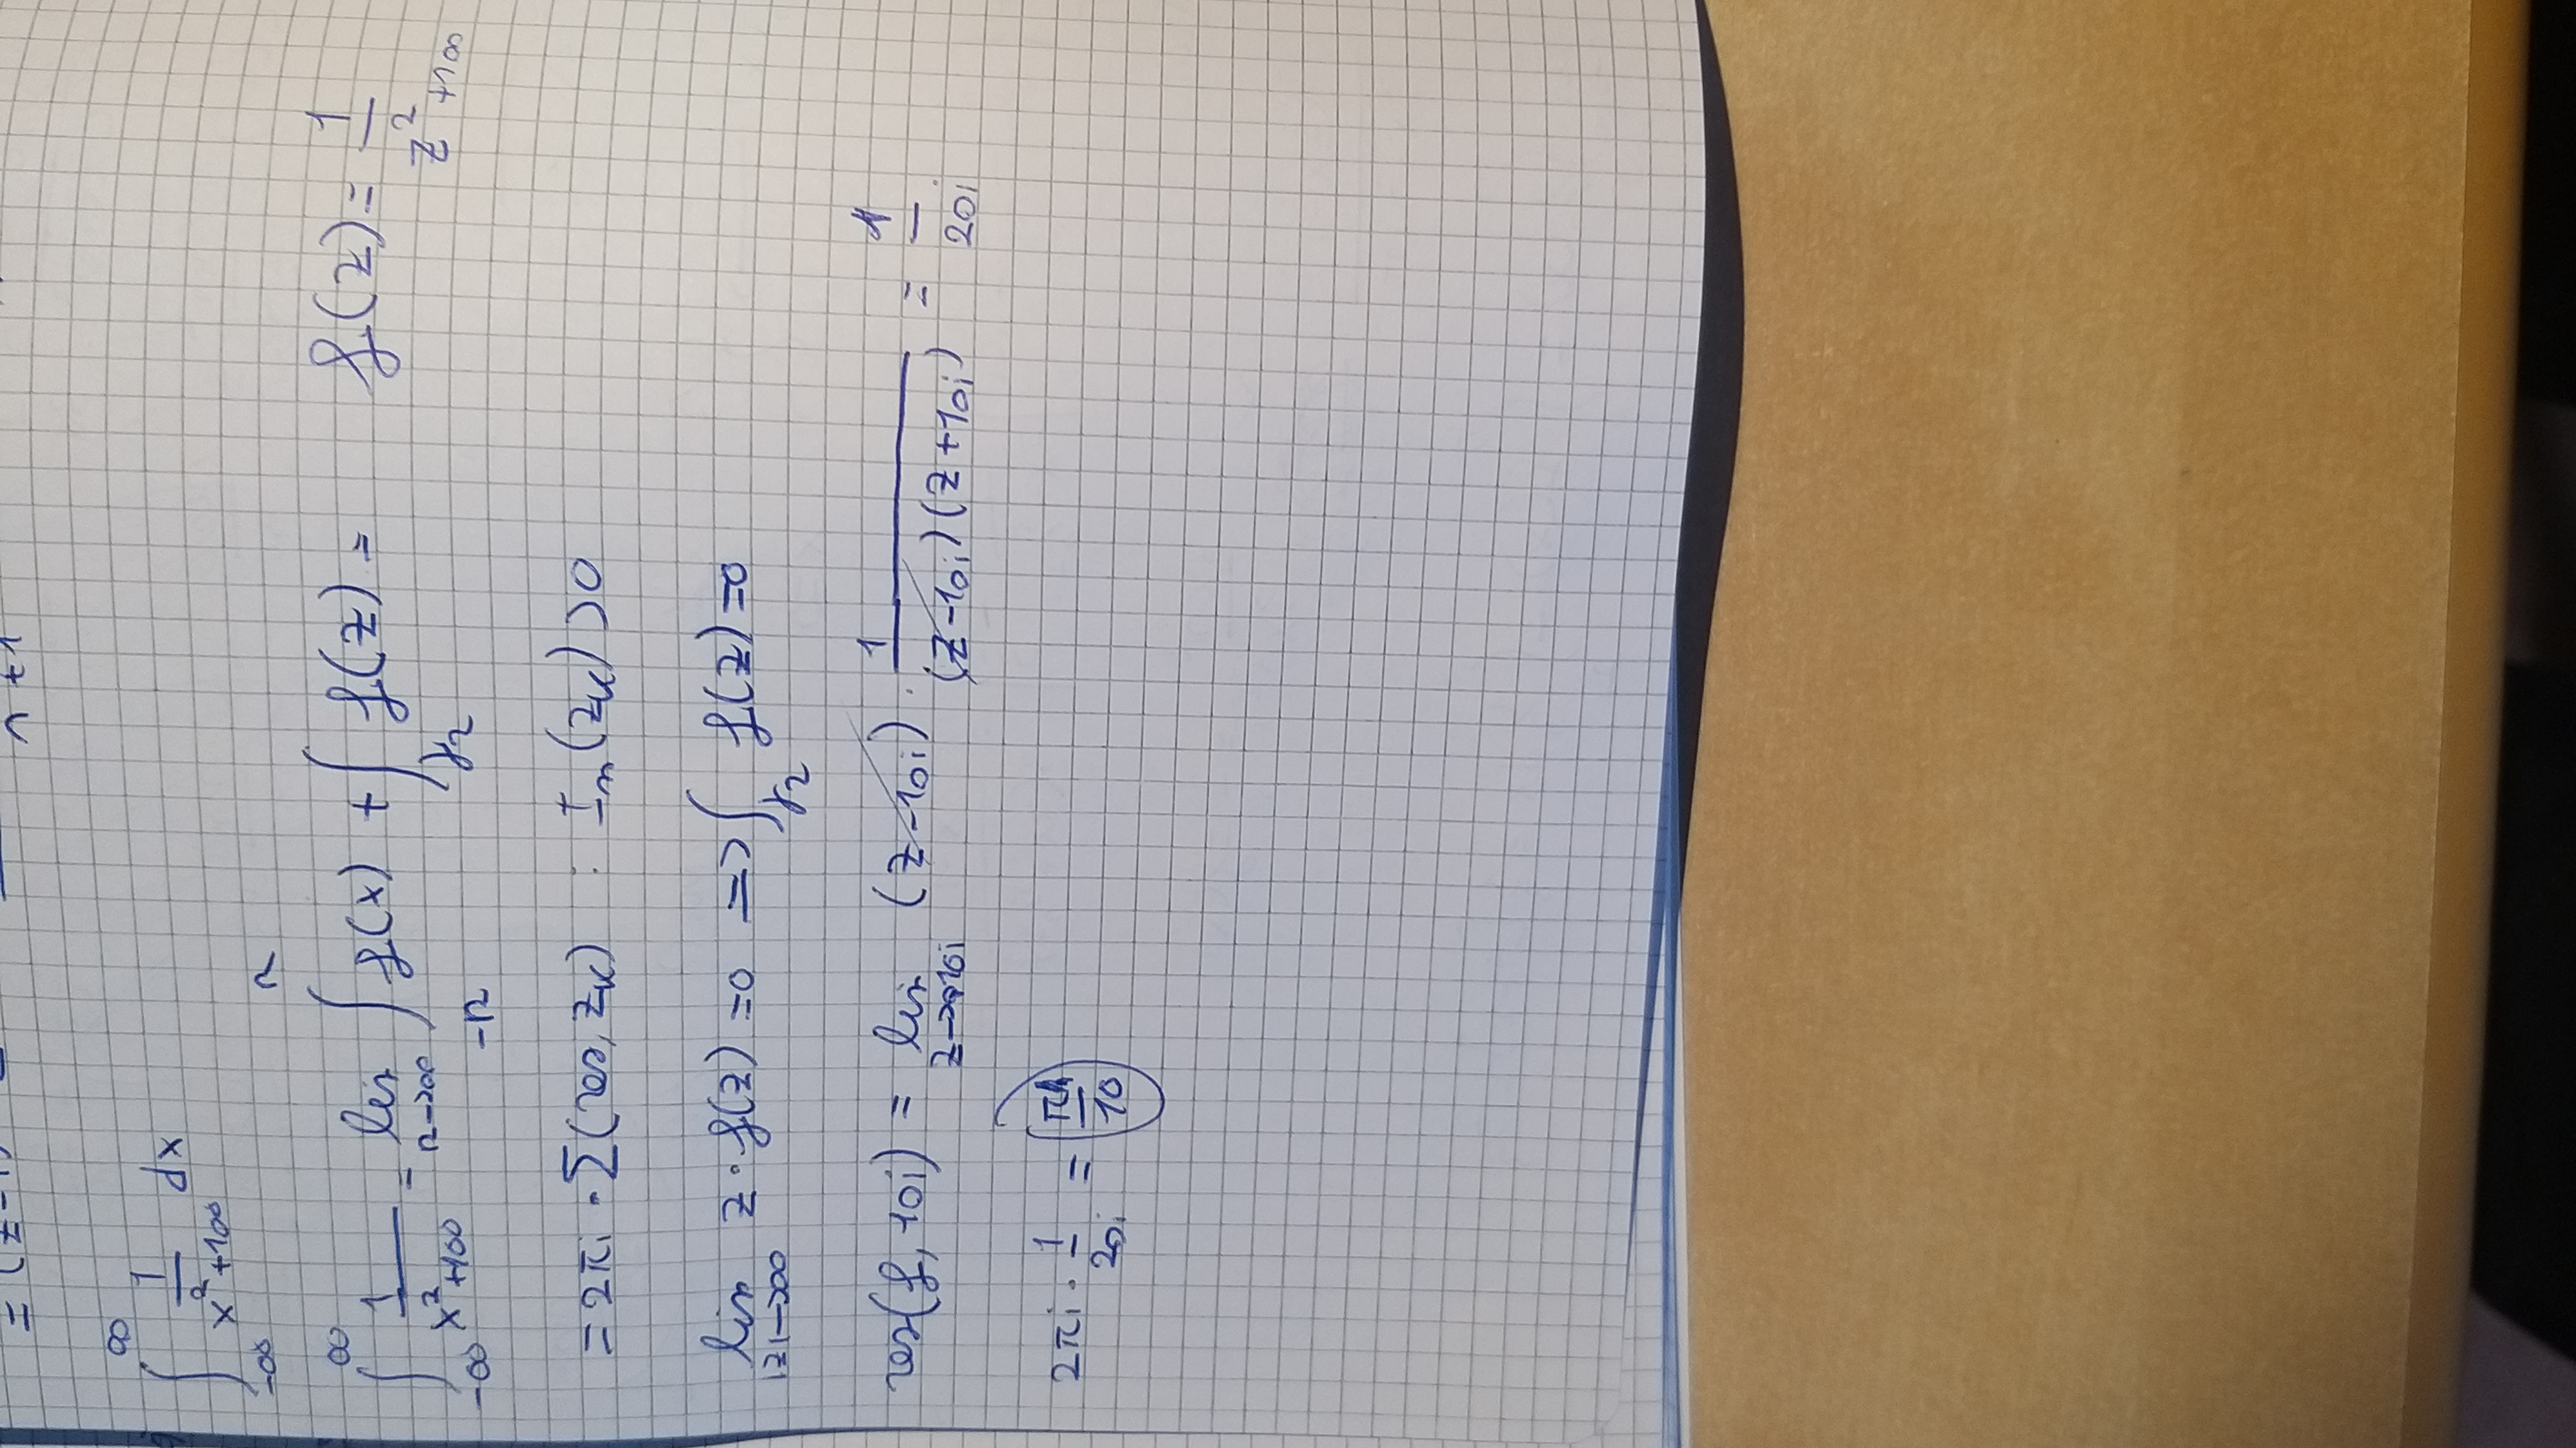 = (z-1)
n+1
∫_{-∞}^{∞} 1/(x²+100) dx
∫_{-∞}^{∞} 1/(x²+100) = lim_{r→∞} ∫_{-r}^{r} f(x) + ∫_{γ₂} f(z) = f(z) = 1/(z²+100)
= 2πi · Σ(res, z_k) : Im(z_k) > 0
lim_{|z|→∞} z · f(z) = 0 => ∫_{γ₂} f(z) = 0
res(f, 10i) = lim_{z→10i} (z-10i) · 1/((z-10i)(z+10i)) = 1/20i
2πi · 1/20i = π/10